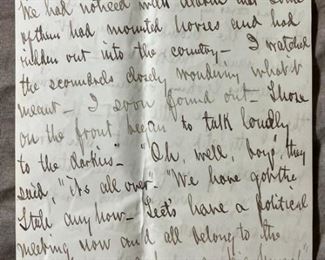 We had noticed with alarm that some
of them had mounted horses and had
ridden out into the country— I watched
the scoundrels closely wondering what it
meant— I soon found out— Those
on the front began to talk loudly
to the darkies— "Oh, well, boys" they
said, "it's all over"— "We have got the
State any how— Let's have a political
meeting now and all belong to the